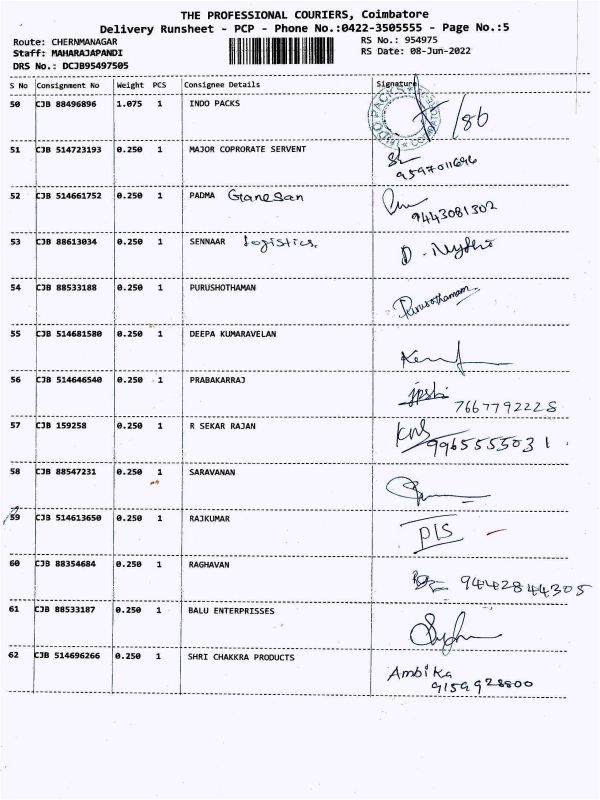 THE PROFESSIONAL COURIERS, Coimbatore
Delivery Runsheet - PCP - Phone No.:0422-3505555 - Page No.:5
Route: CHERNMANAGAR RS No.: 954975
Staff: MAHARAJAPANDI RS Date: 08-Jun-2022
DRS No.: DCJB95497505
S No Consignment No Weight PCS Consignee Details Signature
50 CJB 88496896 1.075 1 INDO PACKS /86
51 CJB 514723193 0.250 1 MAJOR COPRORATE SERVENT
9597011696
52 CJB 514661752 0.250 1 PADMA Ganesan
9443081302
53 CJB 88613034 0.250 1 SENNAAR Logistics.
54 CJB 88533188 0.250 1 PURUSHOTHAMAN
Purusothamam
55 CJB 514681580 0.250 1 DEEPA KUMARAVELAN
56 CJB 514646540 0.250 1 PRABAKARRAJ
7667792228
57 CJB 159258 0.250 1 R SEKAR RAJAN
9965555031
58 CJB 88547231 0.250 1 SARAVANAN
59 CJB 514613650 0.250 1 RAJKUMAR
60 CJB 88354684 0.250 1 RAGHAVAN
9442844305
61 CJB 88533187 0.250 1 BALU ENTERPRISSES
62 CJB 514696266 0.250 1 SHRI CHAKKRA PRODUCTS
Ambika
9159928800